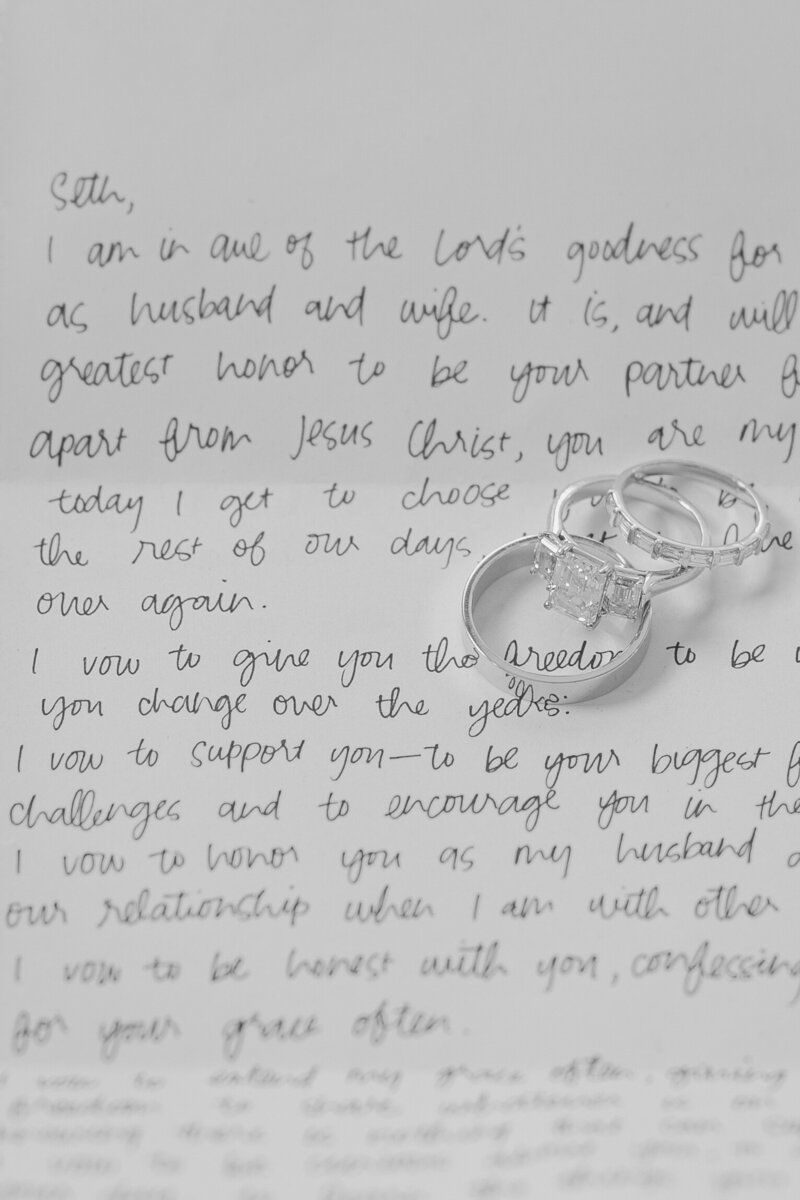 Seth,
I am in awe of the Lord's goodness for
as husband and wife. It is, and will
greatest honor to be your partner
apart from Jesus Christ, you are my
today I get to choose
the rest of our days
over again.
I vow to give you the freedom to be
you change over the years.
I vow to support you—to be your biggest
challenges and to encourage you in the
I vow to honor you as my husband
our relationship when I am with other
I vow to be honest with you, confessing
for your grace often.
I vow to extend my grace often, giving
freedom to